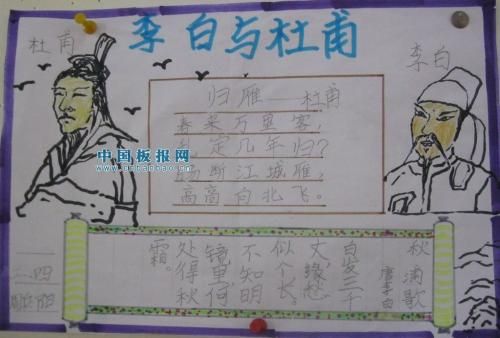 李白与杜甫
杜甫
李白
归雁——杜甫
春来万里客，
定几年归？
断江城雁，
高高向北飞。
中国板报网
www.cnbanbao.cn
秋浦歌
唐李白
白发三千
丈，缘愁
似个长。
不知明
镜里何
处得秋
霜。
二.四